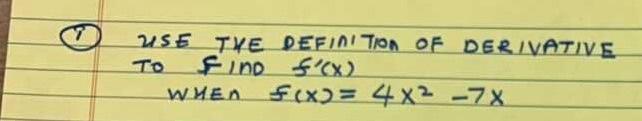 1 USE THE DEFINITION OF DERIVATIVE
TO FIND f'(x)
WHEN f(x) = 4x² -7x